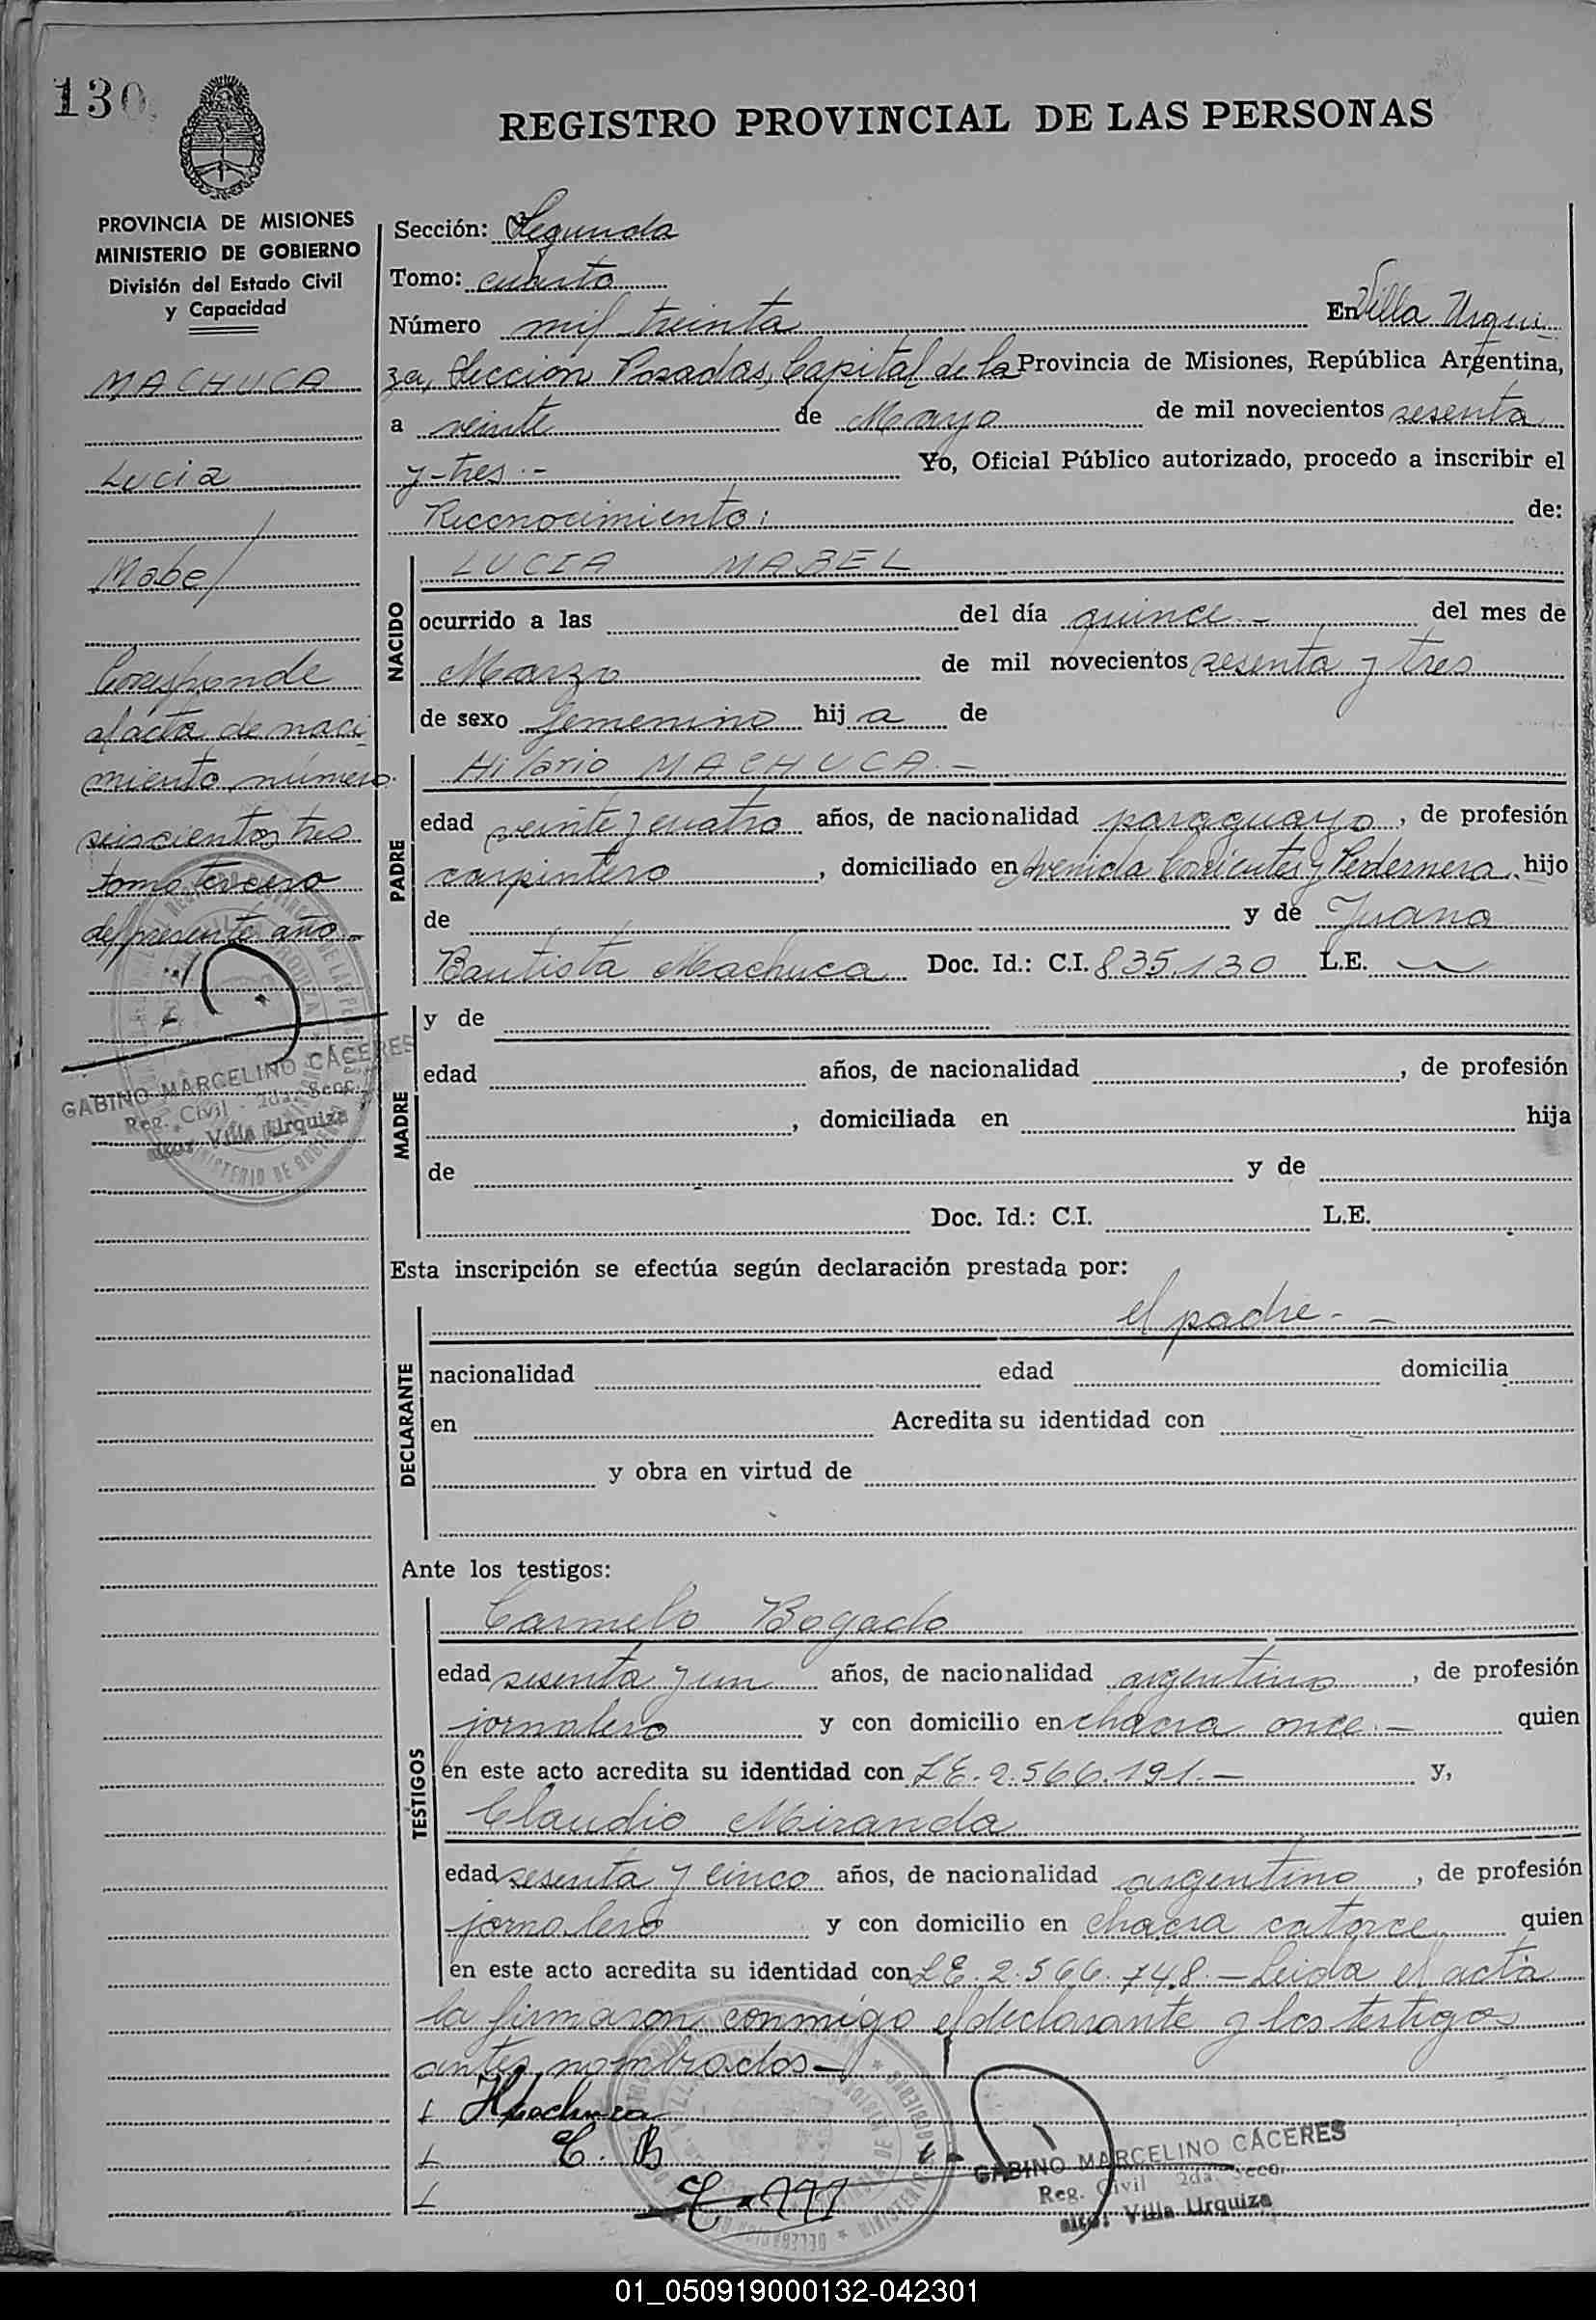 130
REGISTRO PROVINCIAL DE LAS PERSONAS
PROVINCIA DE MISIONES
MINISTERIO DE GOBIERNO
División del Estado Civil
y Capacidad
MACHUCA
Lucia
Mabel
Corresponde
al acta de naci
miento, número
seiscientos tres
tomo tercero
del presente año.-
GABINO MARCELINO CÁCERES
Reg. Civil - 2da. Secc.
Villa Urquiza
Sección: Segunda
Tomo: cuarto
Número mil treinta En Villa Urqui
za, Sección Posadas, Capital de la Provincia de Misiones, República Argentina,
a veinte de Mayo de mil novecientos sesenta
y tres.- Yo, Oficial Público autorizado, procedo a inscribir el
Reconocimiento: de:
NACIDO
LUCIA MABEL
ocurrido a las del día quince.- del mes de
Marzo de mil novecientos sesenta y tres
de sexo femenino hij a de
PADRE
Hilario MACHUCA.-
edad veinte y cuatro años, de nacionalidad paraguayo, de profesión
carpintero, domiciliado en Avenida Corrientes y Pedernera, hijo
de y de Juana
Bautista Machuca Doc. Id.: C.I. 835.130 L.E.
MADRE
y de
edad años, de nacionalidad , de profesión
, domiciliada en hija
de y de
Doc. Id.: C.I. L.E.
Esta inscripción se efectúa según declaración prestada por:
DECLARANTE
el padre.-
nacionalidad edad domicilia
en Acredita su identidad con
y obra en virtud de
Ante los testigos:
TESTIGOS
Carmelo Bogado
edad sesenta y un años, de nacionalidad argentino, de profesión
jornalero y con domicilio en chacra once.- quien
en este acto acredita su identidad con L.E. 2.566.191.- y,
Claudio Miranda
edad sesenta y cinco años, de nacionalidad argentino, de profesión
jornalero y con domicilio en chacra catorce quien
en este acto acredita su identidad con L.E. 2.566.748.- Leida el acta
la firmaron conmigo el declarante y los testigos
antes nombrados.-
HMachuca
C. B
C. M
GABINO MARCELINO CÁCERES
Reg. Civil 2da. Secc.
Villa Urquiza
01_050919000132-042301